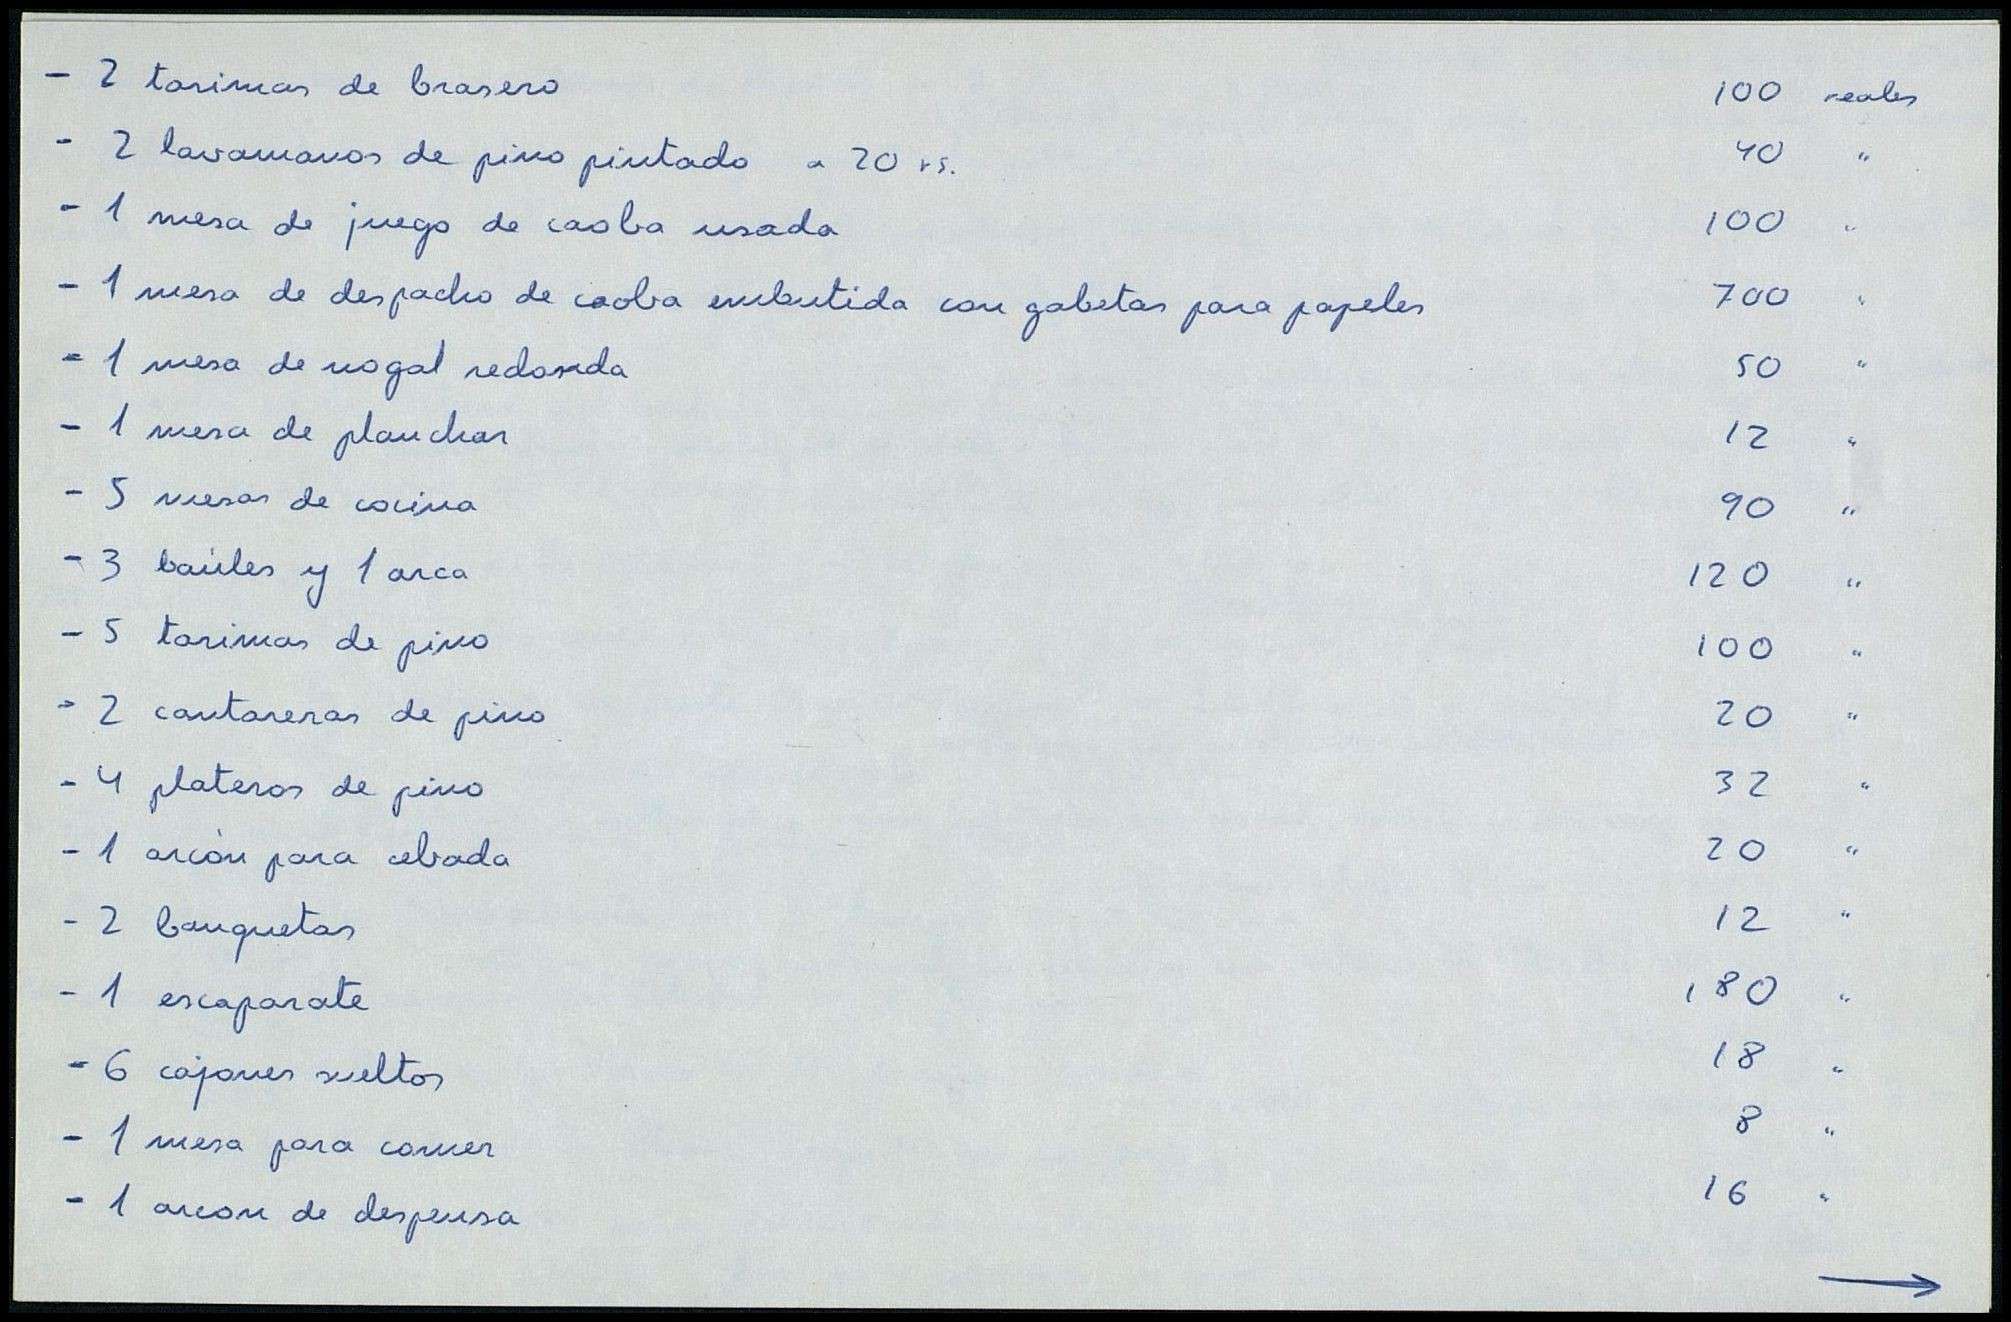 - 2 tarimas de brasero 100 reales
- 2 lavamanos de pino pintado a 20 rs. 40 "
- 1 mesa de juego de caoba usada 100 "
- 1 mesa de despacho de caoba embutida con gabetas para papeles 700 "
- 1 mesa de nogal redonda 50 "
- 1 mesa de planchar 12 "
- 5 mesas de cocina 90 "
- 3 baúles y 1 arca 120 "
- 5 tarimas de pino 100 "
- 2 cantareras de pino 20 "
- 4 plateros de pino 32 "
- 1 arcón para cebada 20 "
- 2 banquetas 12 "
- 1 escaparate 180 "
- 6 cajones sueltos 18 "
- 1 mesa para comer 8 "
- 1 arcon de despensa 16 "
→